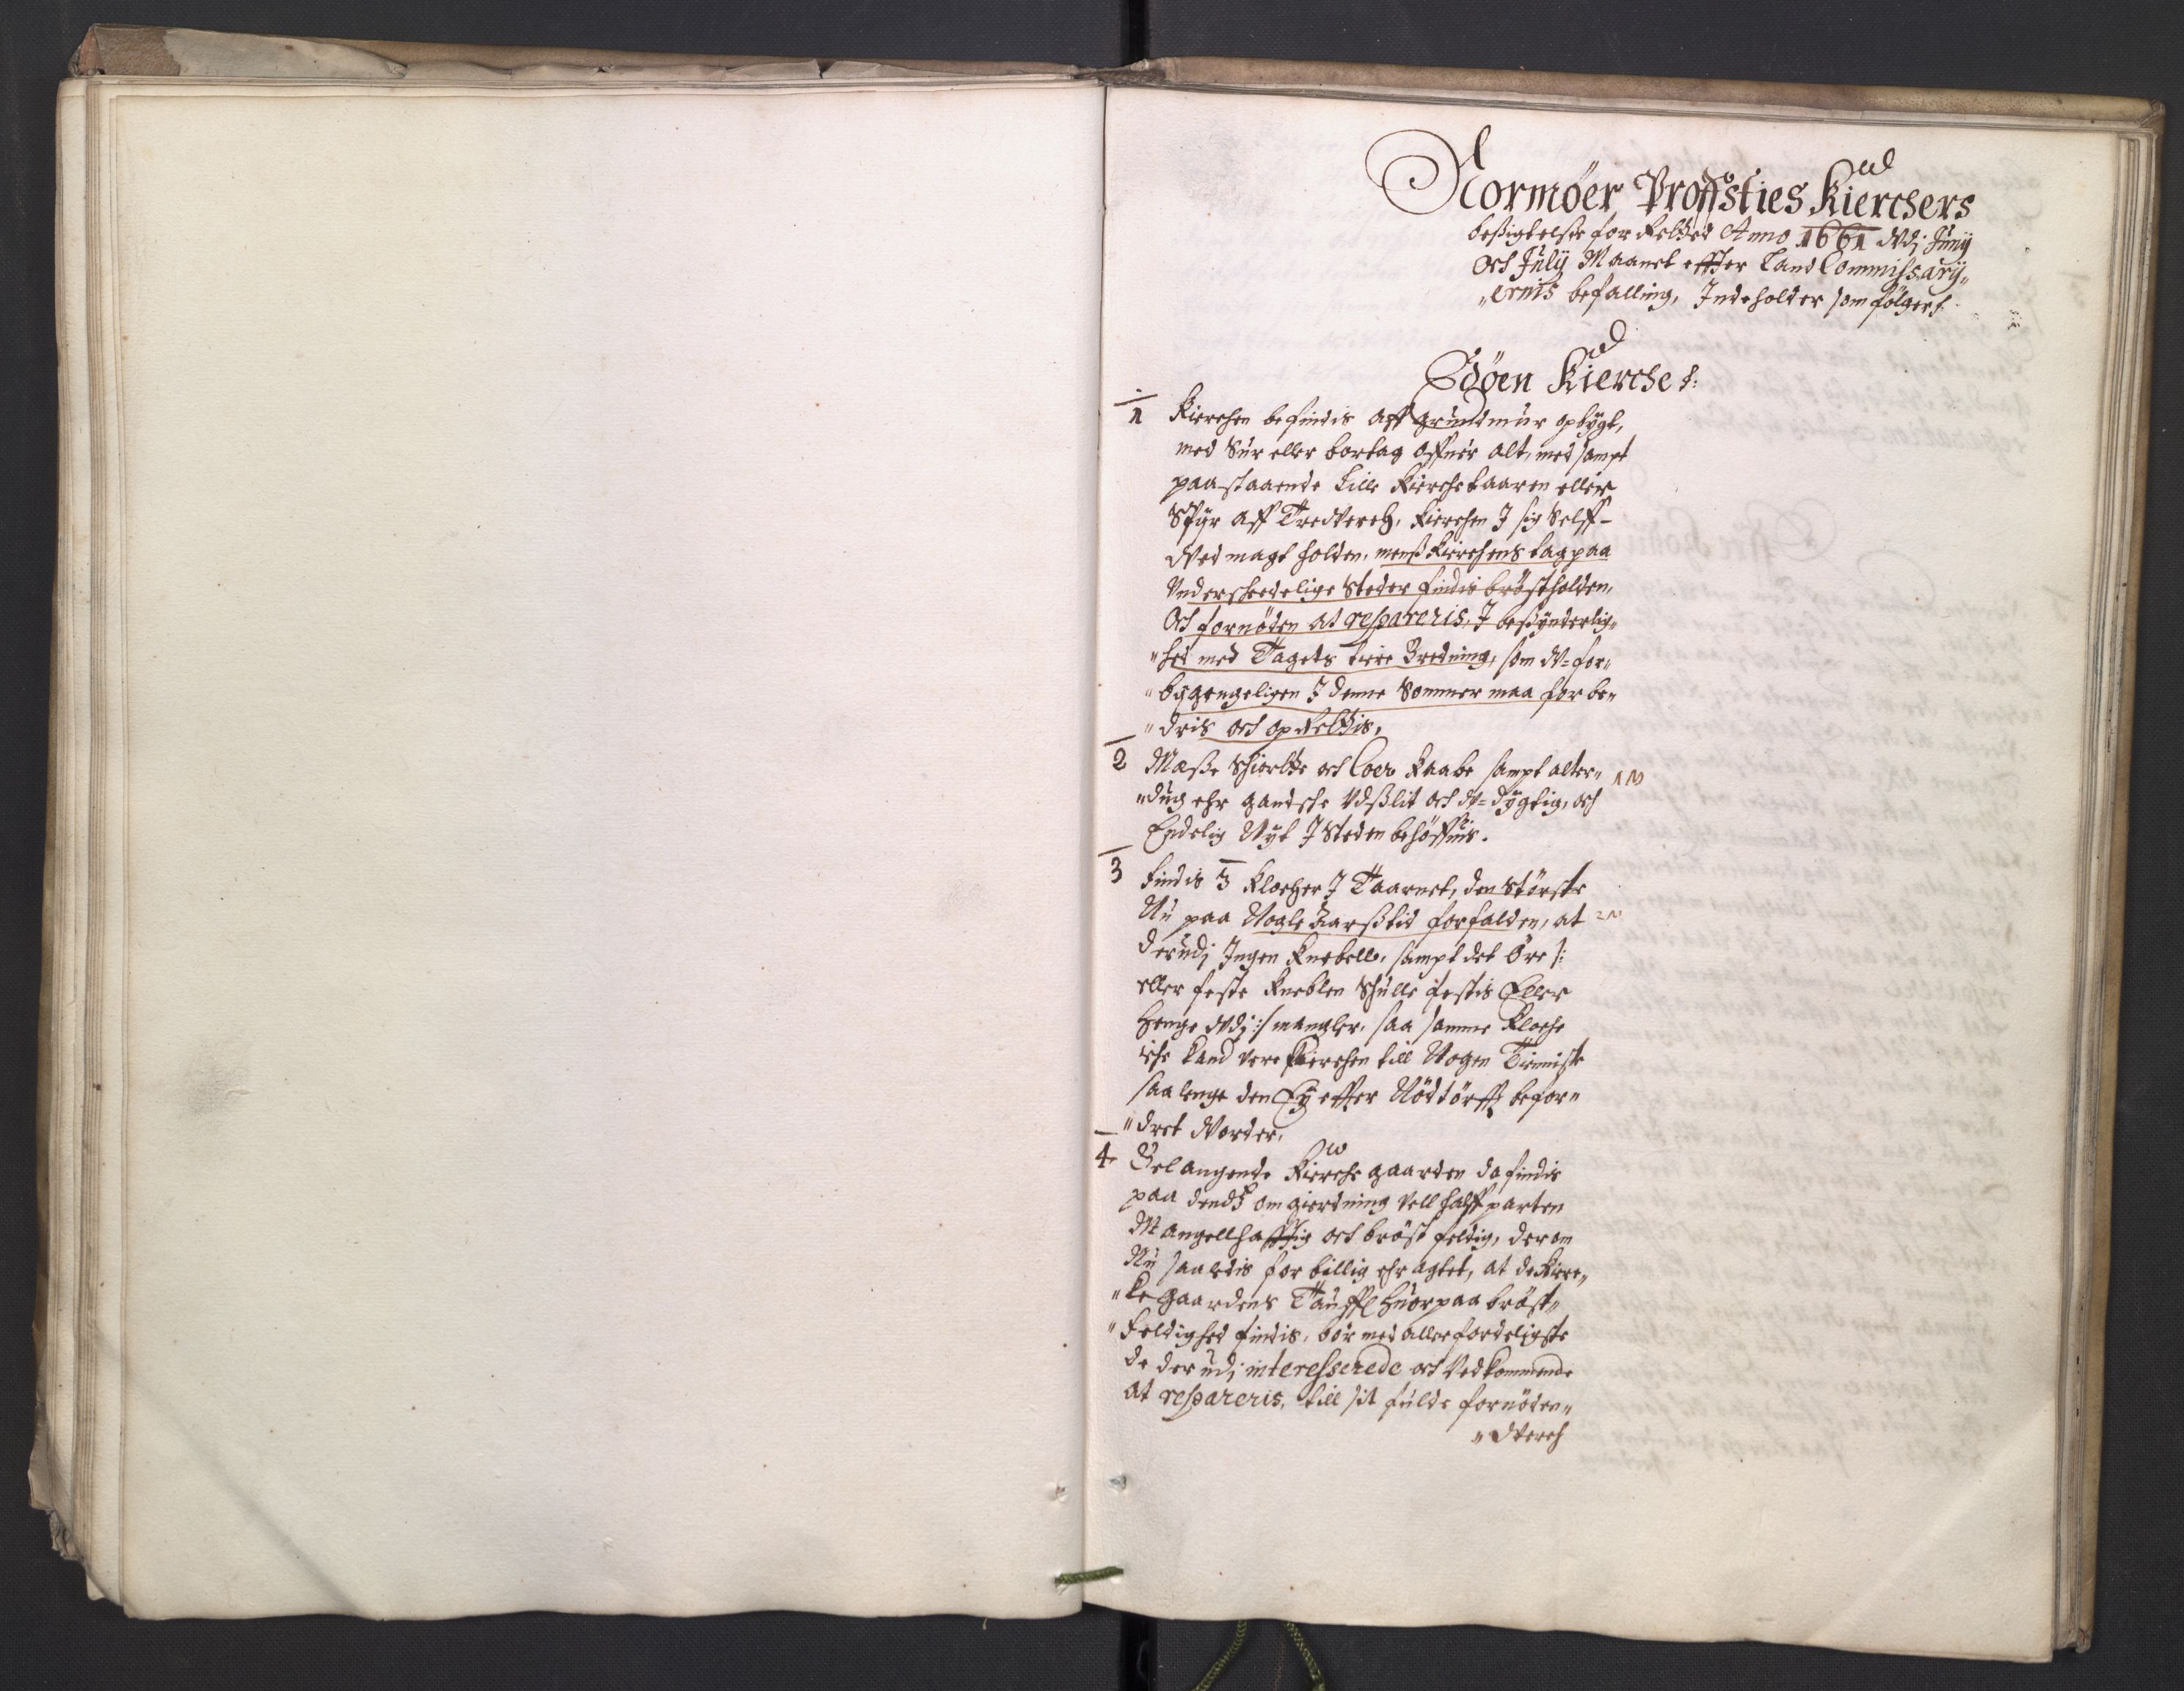 Normøer Proffsties Kierchers
beßigtelse forrettet Anno 1661 udj Junij
och Julij Maanet effter Land Commissarij„
„ernis befalling, Indeholder som følger/.
Edøen Kierche/:
1 Kierchen befindis aff grundmur opbÿgt,
med Sùr eller bortag offuer alt, med sampt
paastaaende lille Kierchetaaren eller
Spÿr aff Treduerch, Kierchen I sig Selff
ved magt holden, menß Kierchens tag paa
Underscheedelige Steder findis brøstholden,
Och fornøden at repareris, I besÿnderlig„
„hed med Tagets tiere Bredning, som u=for„
„bÿgengeligen I denne Sommer maa forbe„
„dris och oprettis.
2 Messe Schiortte och Coer Kaabe sampt alter„
„dug ehr gandsche Udßlit och u=dÿgtig, och
Endelig Nÿt I Steden behøffuis.
3 Findis 3 Klocher I Taarnet, den Største
Nu paa Nogle Aarß tid forfalden, at
derudj Ingen Knebell, sampt det Øre /:
eller feste Kneblen Schulle festis Eller
henge udj :/ mangler, saa samme Kloche
iche kand vere Kierchen till Nogen Tienniste
saa lenge den Eÿ effter Nødtørfft befor„
„dret vorder.
4 Belangende Kierche gaarden da findis
paa dends omgierdning vell halffparten
Mangellhafftig och brøstfeldig, derom
Nu saaledis for billig ehr agtet, at de Kier„
„ke Gaardens huorpaa brøst„
„feldighed findis, bør med allerforderligste
de derudj interesserede och Vedkommende
at repareris, till sit fulde fornøden„
„Verch